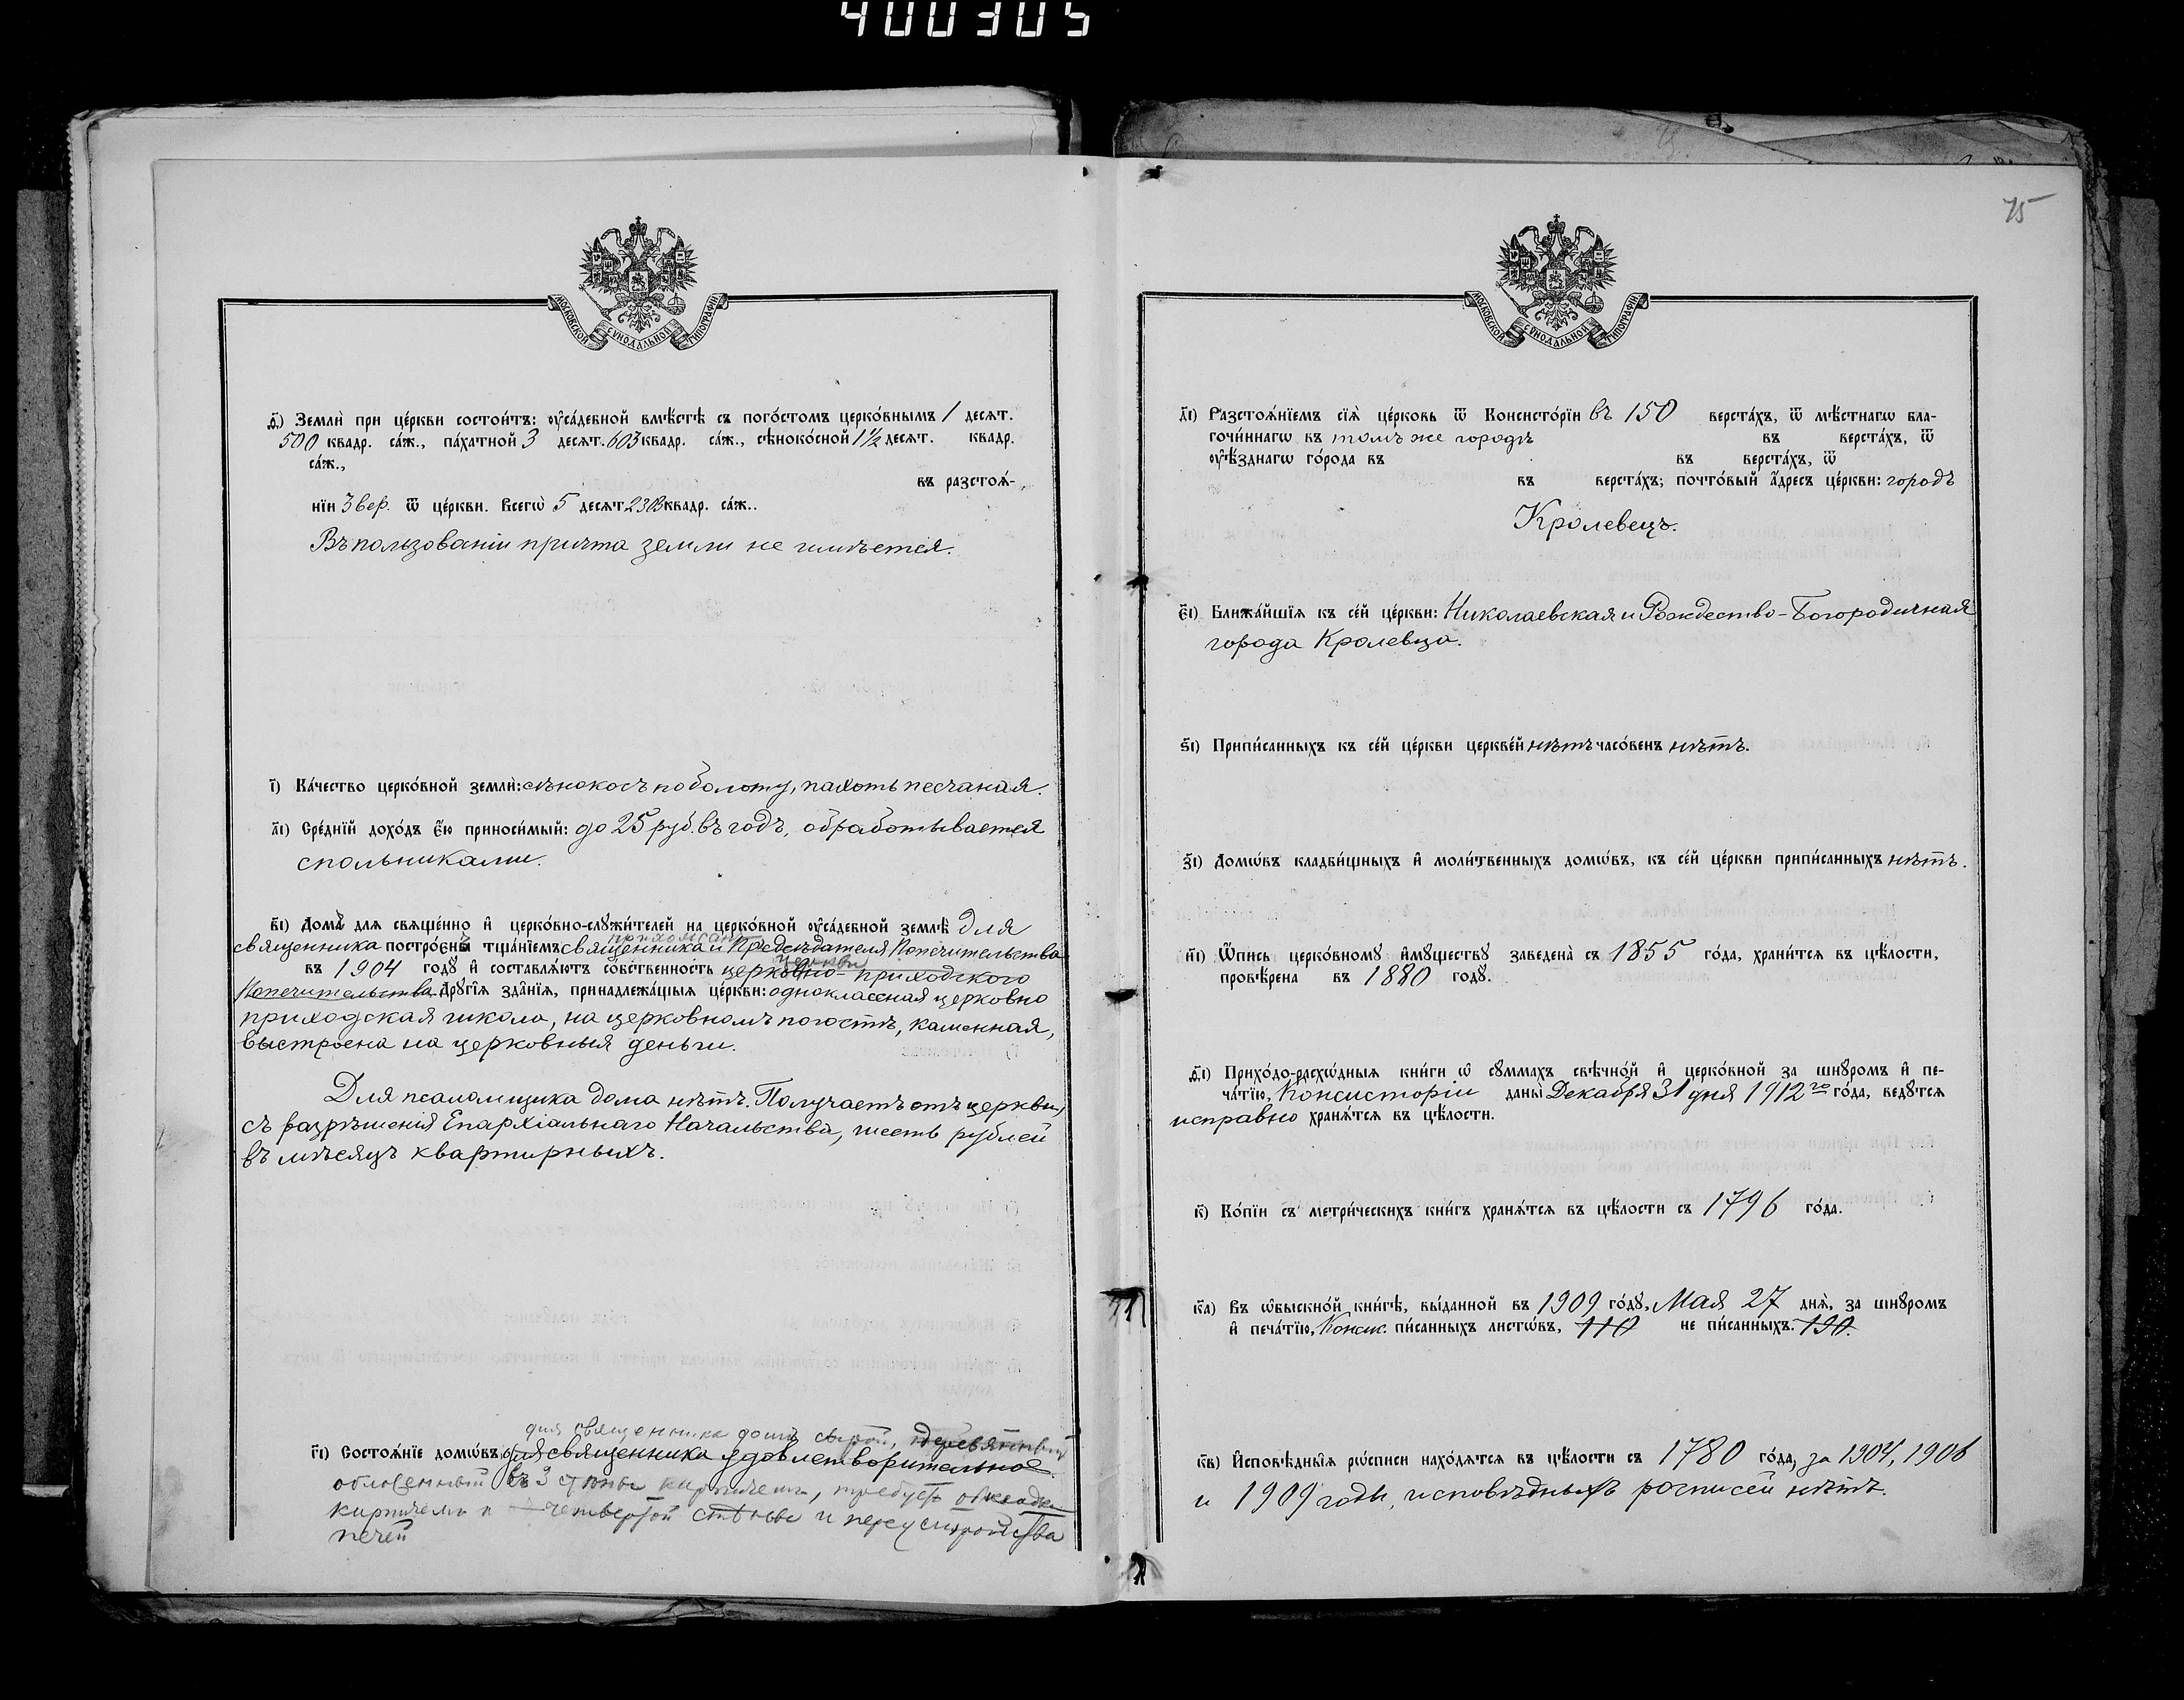 400305
75
МОСКОВСКОЙ СУНОДАЛЬНОЙ ТИПОГРАФІИ
ѳ҃) Землѝ при це́ркви состои́тъ: оуса́дебной вмѣ́стѣ съ пого́стомъ церко́внымъ 1 десят.
500 квадр. са́ж., па́хатной 3 десят. 603 квадр. са́ж., сѣноко́сной 1 ½ десят. квадр.
са́ж.,
въ разстоѧ́-
нїи 3 вер. ѿ це́ркви. Всегѡ̀ 5 десят 2303 квадр. са́ж..
Въ пользованіи причта земли не имѣется.
і҃) Ка́чество церко́вной землѝ: сѣнокосъ по болоту, пахоть песчаная.
а҃і) Сре́днїй дохо́дъ є҆́ю приноси́мый: до 25 руб. въ годъ, обработывается
спольниками.
в҃і) Дома̀ для свяще́нно и҆ церко́вно-служи́телей на церко́вной оуса́дебной землѣ̀ для
прихожанъ
священника постро́енъ тща́нїемъ священника и Предсѣдателя Попечительства
церкви
въ 1904 году̀ и҆ составлѧ́ютъ со́бственность церковно-приходского
Попечительства. Другі̑я зда̑нїя, принадлежа́щыя це́ркви: одноклассная церковно
приходская школа, на церковномъ погостѣ, каменная,
выстроена на церковныя деньги.
Для псаломщика дома нѣтъ. Получаетъ отъ церкви,
съ разрѣшенія Епархіальнаго Начальства, шесть рублей
въ мѣсяцъ квартирныхъ.
для священника домъ сырой, деревянный
г҃і) Состоѧ́нїе домѡ́въ для священника удовлетворительное.
обложенный въ 3 стѣны кирпичемъ, требуетъ обкладки
кирпичемъ и четвертой стѣны и переустройства
печей
МОСКОВСКОЙ СУНОДАЛЬНОЙ ТИПОГРАФІИ
д҃і) Разстоѧ́нїемъ сїѧ̀ це́рковь ѿ Консисто́рїи въ 150 верста́хъ, ѿ мѣ́стнагѡ бла-
гочи́ннагѡ въ томъ же городѣ въ верста́хъ, ѿ
оуѣ́зднагѡ го́рода въ въ верста́хъ, ѿ
въ верста́хъ; почто́вый а҆́дресъ це́ркви: городъ
Кролевецъ.
є҃і) Ближа́йшїя къ се́й це́ркви: Николаевская и Рождество-Богородичная
города Кролевца.
ѕ҃і) Припи́санныхъ къ се́й це́ркви церкве́й нѣтъ часо́венъ нѣтъ.
з҃і) Домѡ́въ кладби́щныхъ и҆ моли́твенныхъ домѡ́въ, къ се́й це́ркви припи́санныхъ нѣтъ.
и҃і) Ѡ҆́пись церко́вному и҆му́ществу заведена̀ съ 1855 го́да, храни́тся въ цѣ́лости,
провѣ́рена въ 1880 году̀.
ѳ҃і) Прихо́до-расхѡ́дныя кни́ги ѡ҆ су́ммахъ свѣчно́й и҆ церко́вной за шнуро́мъ и҆ пе-
ча́тїю, Консисторіи даны̀ Декабря 31 дня 1912го го́да, веду́тся
исправно хранѧ́тся въ цѣ́лости.
к҃) Ко́пїи съ метри́ческихъ кни́гъ хранѧ́тся въ цѣ́лости съ 1796 го́да.
к҃а) Въ ѡ҆быскно́й кни́гѣ, вы́данной въ 1909 го́ду, Мая 27 дня̀, за шнуро́мъ
и҆ печа́тїю, Консис. пи́санныхъ листѡ́въ, 110 не пи́санныхъ. 190.
к҃в) И҆сповѣ́дныѧ рѡ́списи нахо́дятся въ цѣ́лости съ 1780 го́да, за 1904, 1906
и 1909 годы, исповѣдныхъ росписей нѣтъ.